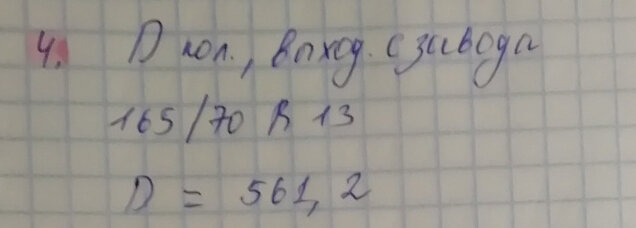 4. D кол., выход. с завода
165/70 R 13
D = 561,2